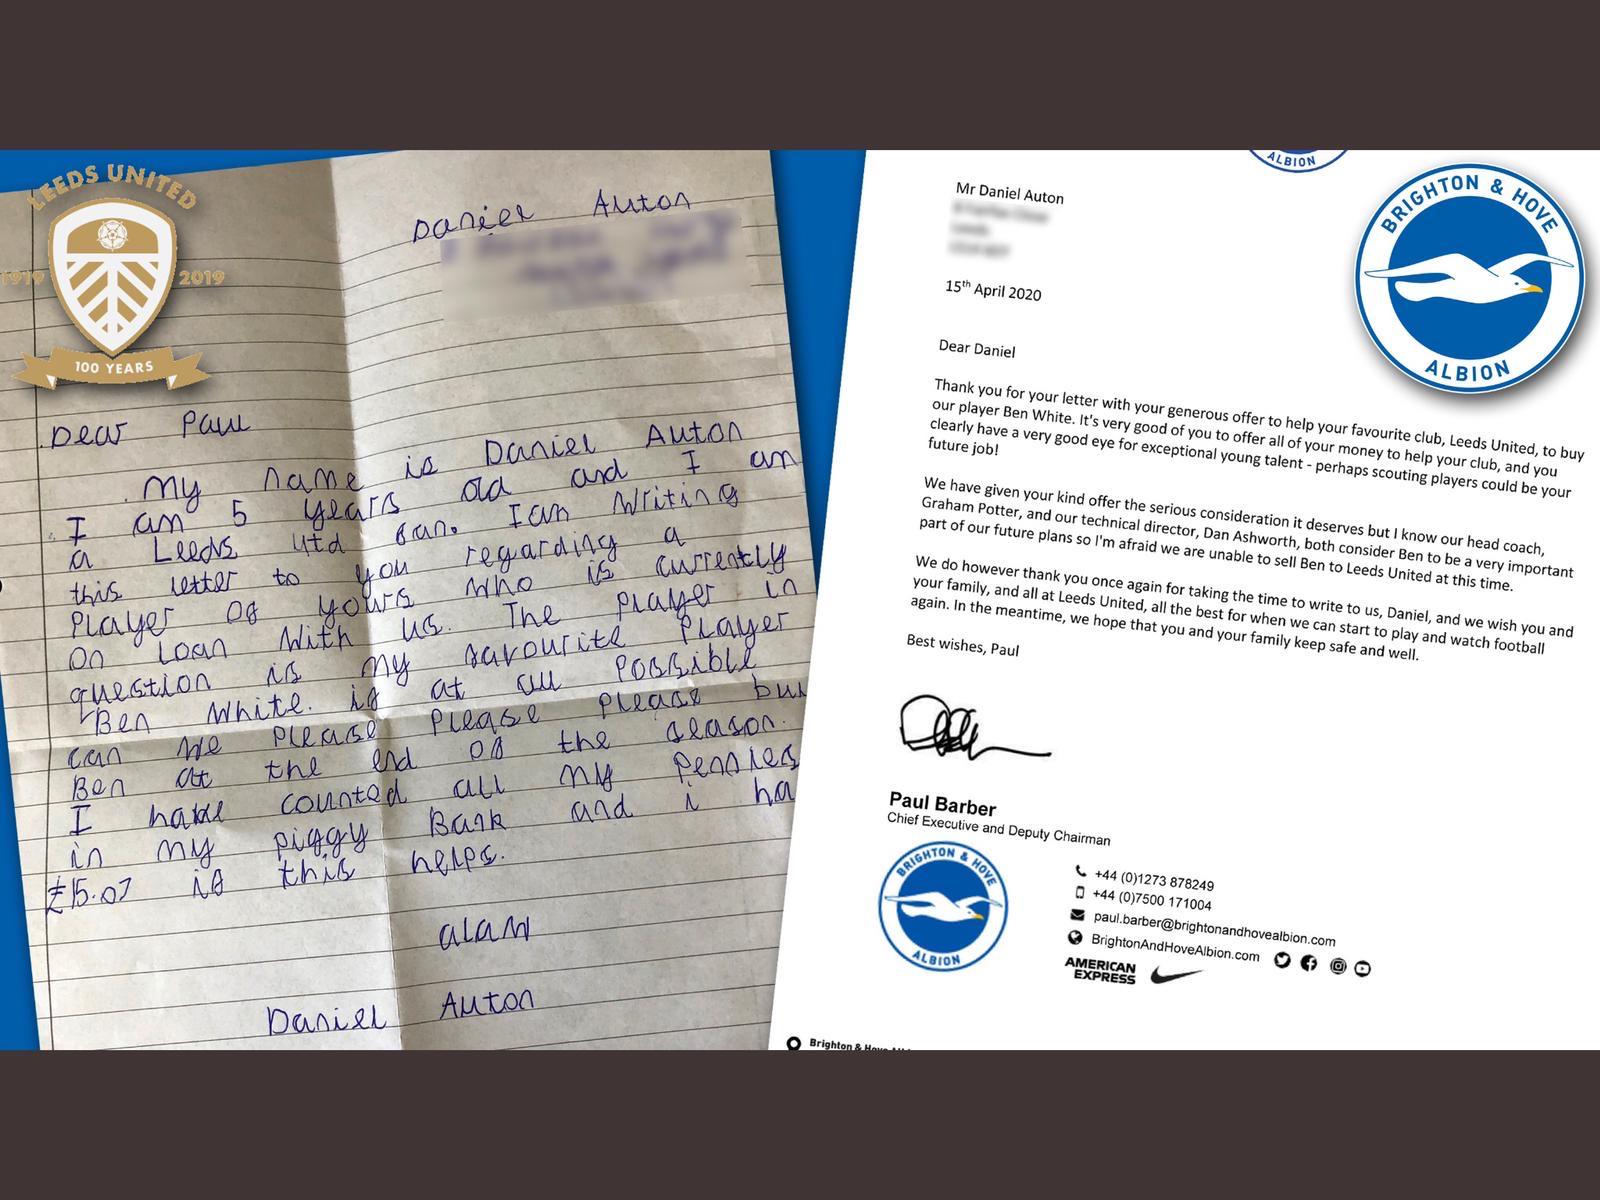 LEEDS UNITED
1919 2019
100 YEARS
Daniel Auton
Dear Paul
My name is Daniel Auton
I am 5 years old and I am
a Leeds utd fan. I am Writing
this letter to you regarding a
Player of yours who is currently
on Loan With us. The Player in
question is my favourite Player
Ben White. if at all Possible
can we Please Please Please buy
Ben at the end of the season.
I have counted all my pennies
in my piggy Bank and i ha
£15.07 if this helps.
alaw
Daniel Auton
ALBION
BRIGHTON & HOVE
ALBION
Mr Daniel Auton
15th April 2020
Dear Daniel
Thank you for your letter with your generous offer to help your favourite club, Leeds United, to buy
our player Ben White. It's very good of you to offer all of your money to help your club, and you
clearly have a very good eye for exceptional young talent - perhaps scouting players could be your
future job!
We have given your kind offer the serious consideration it deserves but I know our head coach,
Graham Potter, and our technical director, Dan Ashworth, both consider Ben to be a very important
part of our future plans so I'm afraid we are unable to sell Ben to Leeds United at this time.
We do however thank you once again for taking the time to write to us, Daniel, and we wish you and
your family, and all at Leeds United, all the best for when we can start to play and watch football
again. In the meantime, we hope that you and your family keep safe and well.
Best wishes, Paul
Paul Barber
Chief Executive and Deputy Chairman
BRIGHTON & HOVE
ALBION
+44 (0)1273 878249
+44 (0)7500 171004
paul.barber@brightonandhovealbion.com
BrightonAndHoveAlbion.com
AMERICAN
EXPRESS
Brighton & Hove Al